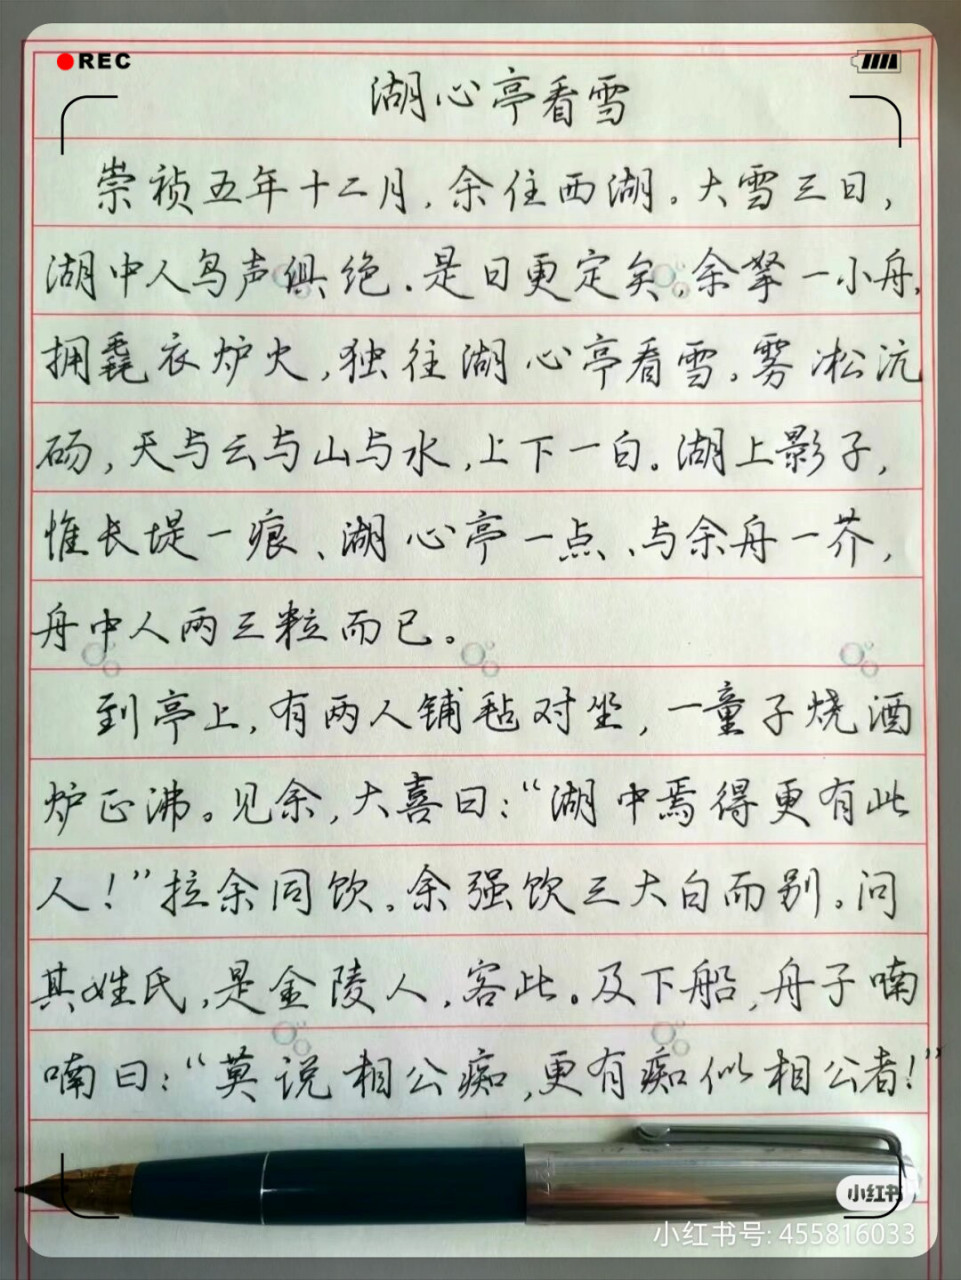 REC
湖心亭看雪
崇祯五年十二月,余住西湖。大雪三日,
湖中人鸟声俱绝.是日更定矣,余拏一小舟,
拥毳衣炉火,独往湖心亭看雪。雾凇沆
砀,天与云与山与水,上下一白。湖上影子,
惟长堤一痕、湖心亭一点、与余舟一芥,
舟中人两三粒而已。
到亭上,有两人铺毡对坐,一童子烧酒
炉正沸。见余,大喜曰:“湖中焉得更有此
人!”拉余同饮。余强饮三大白而别。问
其姓氏,是金陵人,客此。及下船,舟子喃
喃曰:“莫说相公痴,更有痴似相公者!”
小红书
小红书号: 455816033